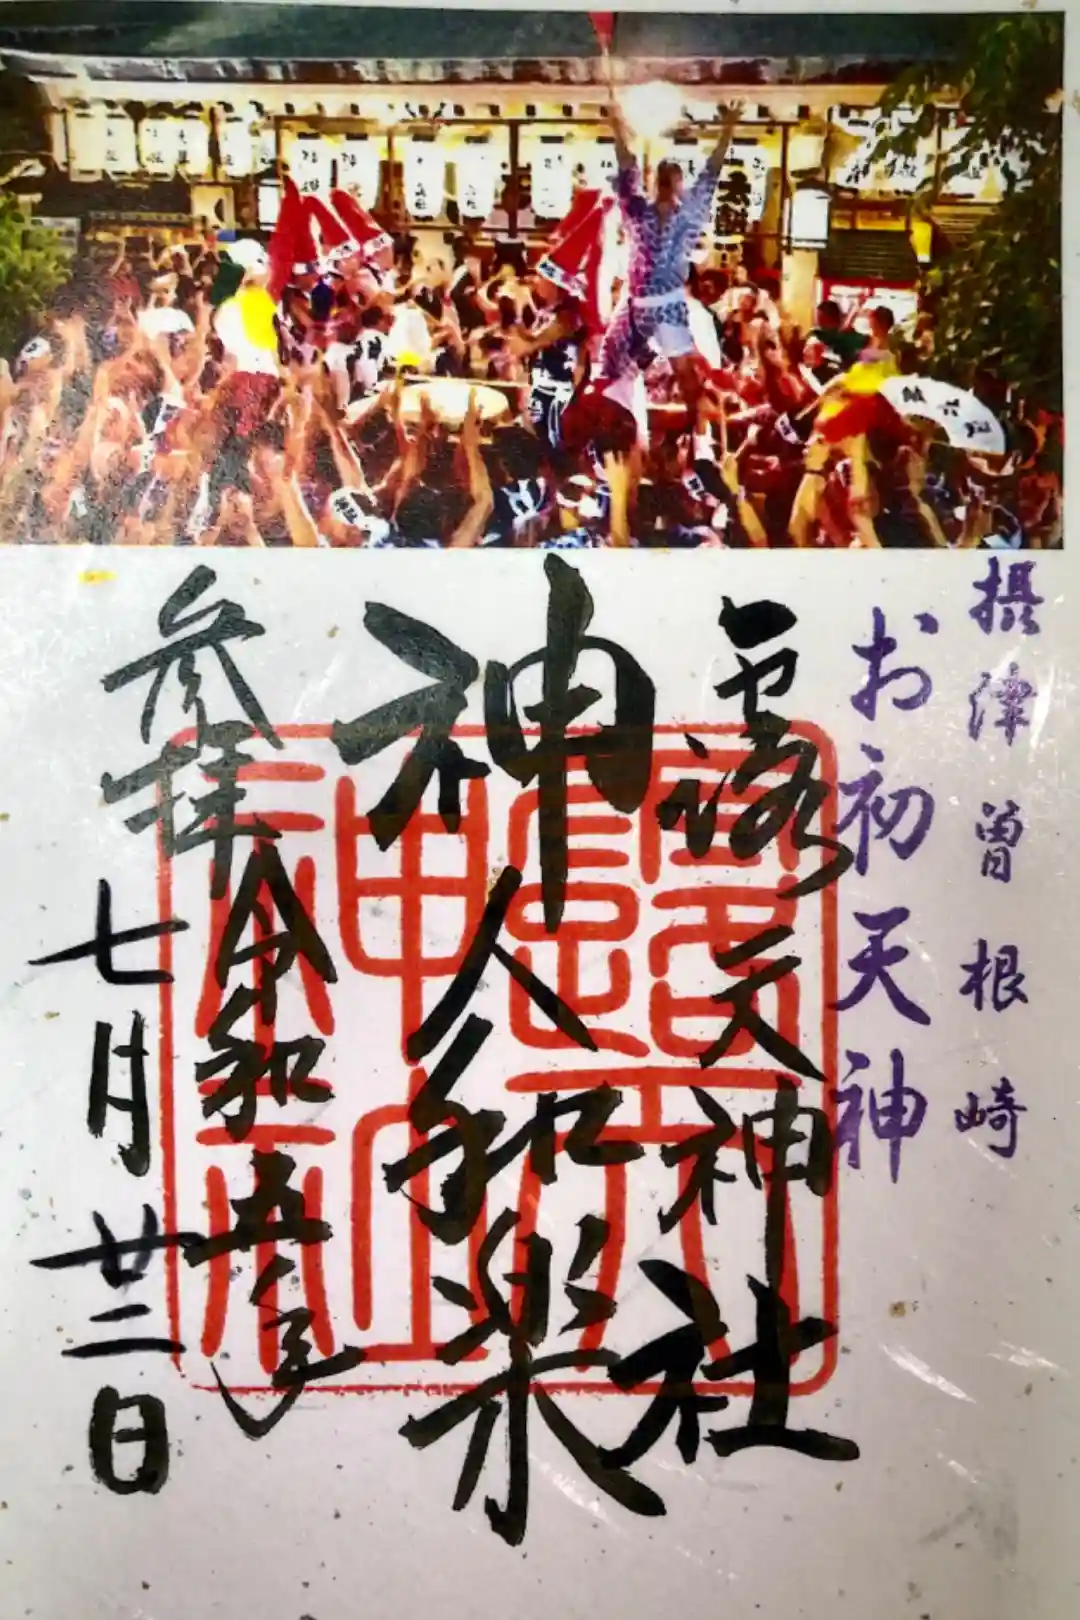 摂津曽根崎
お初天神
露天神社
神人和楽
参拝
令和五年
七月廿二日
露天神社